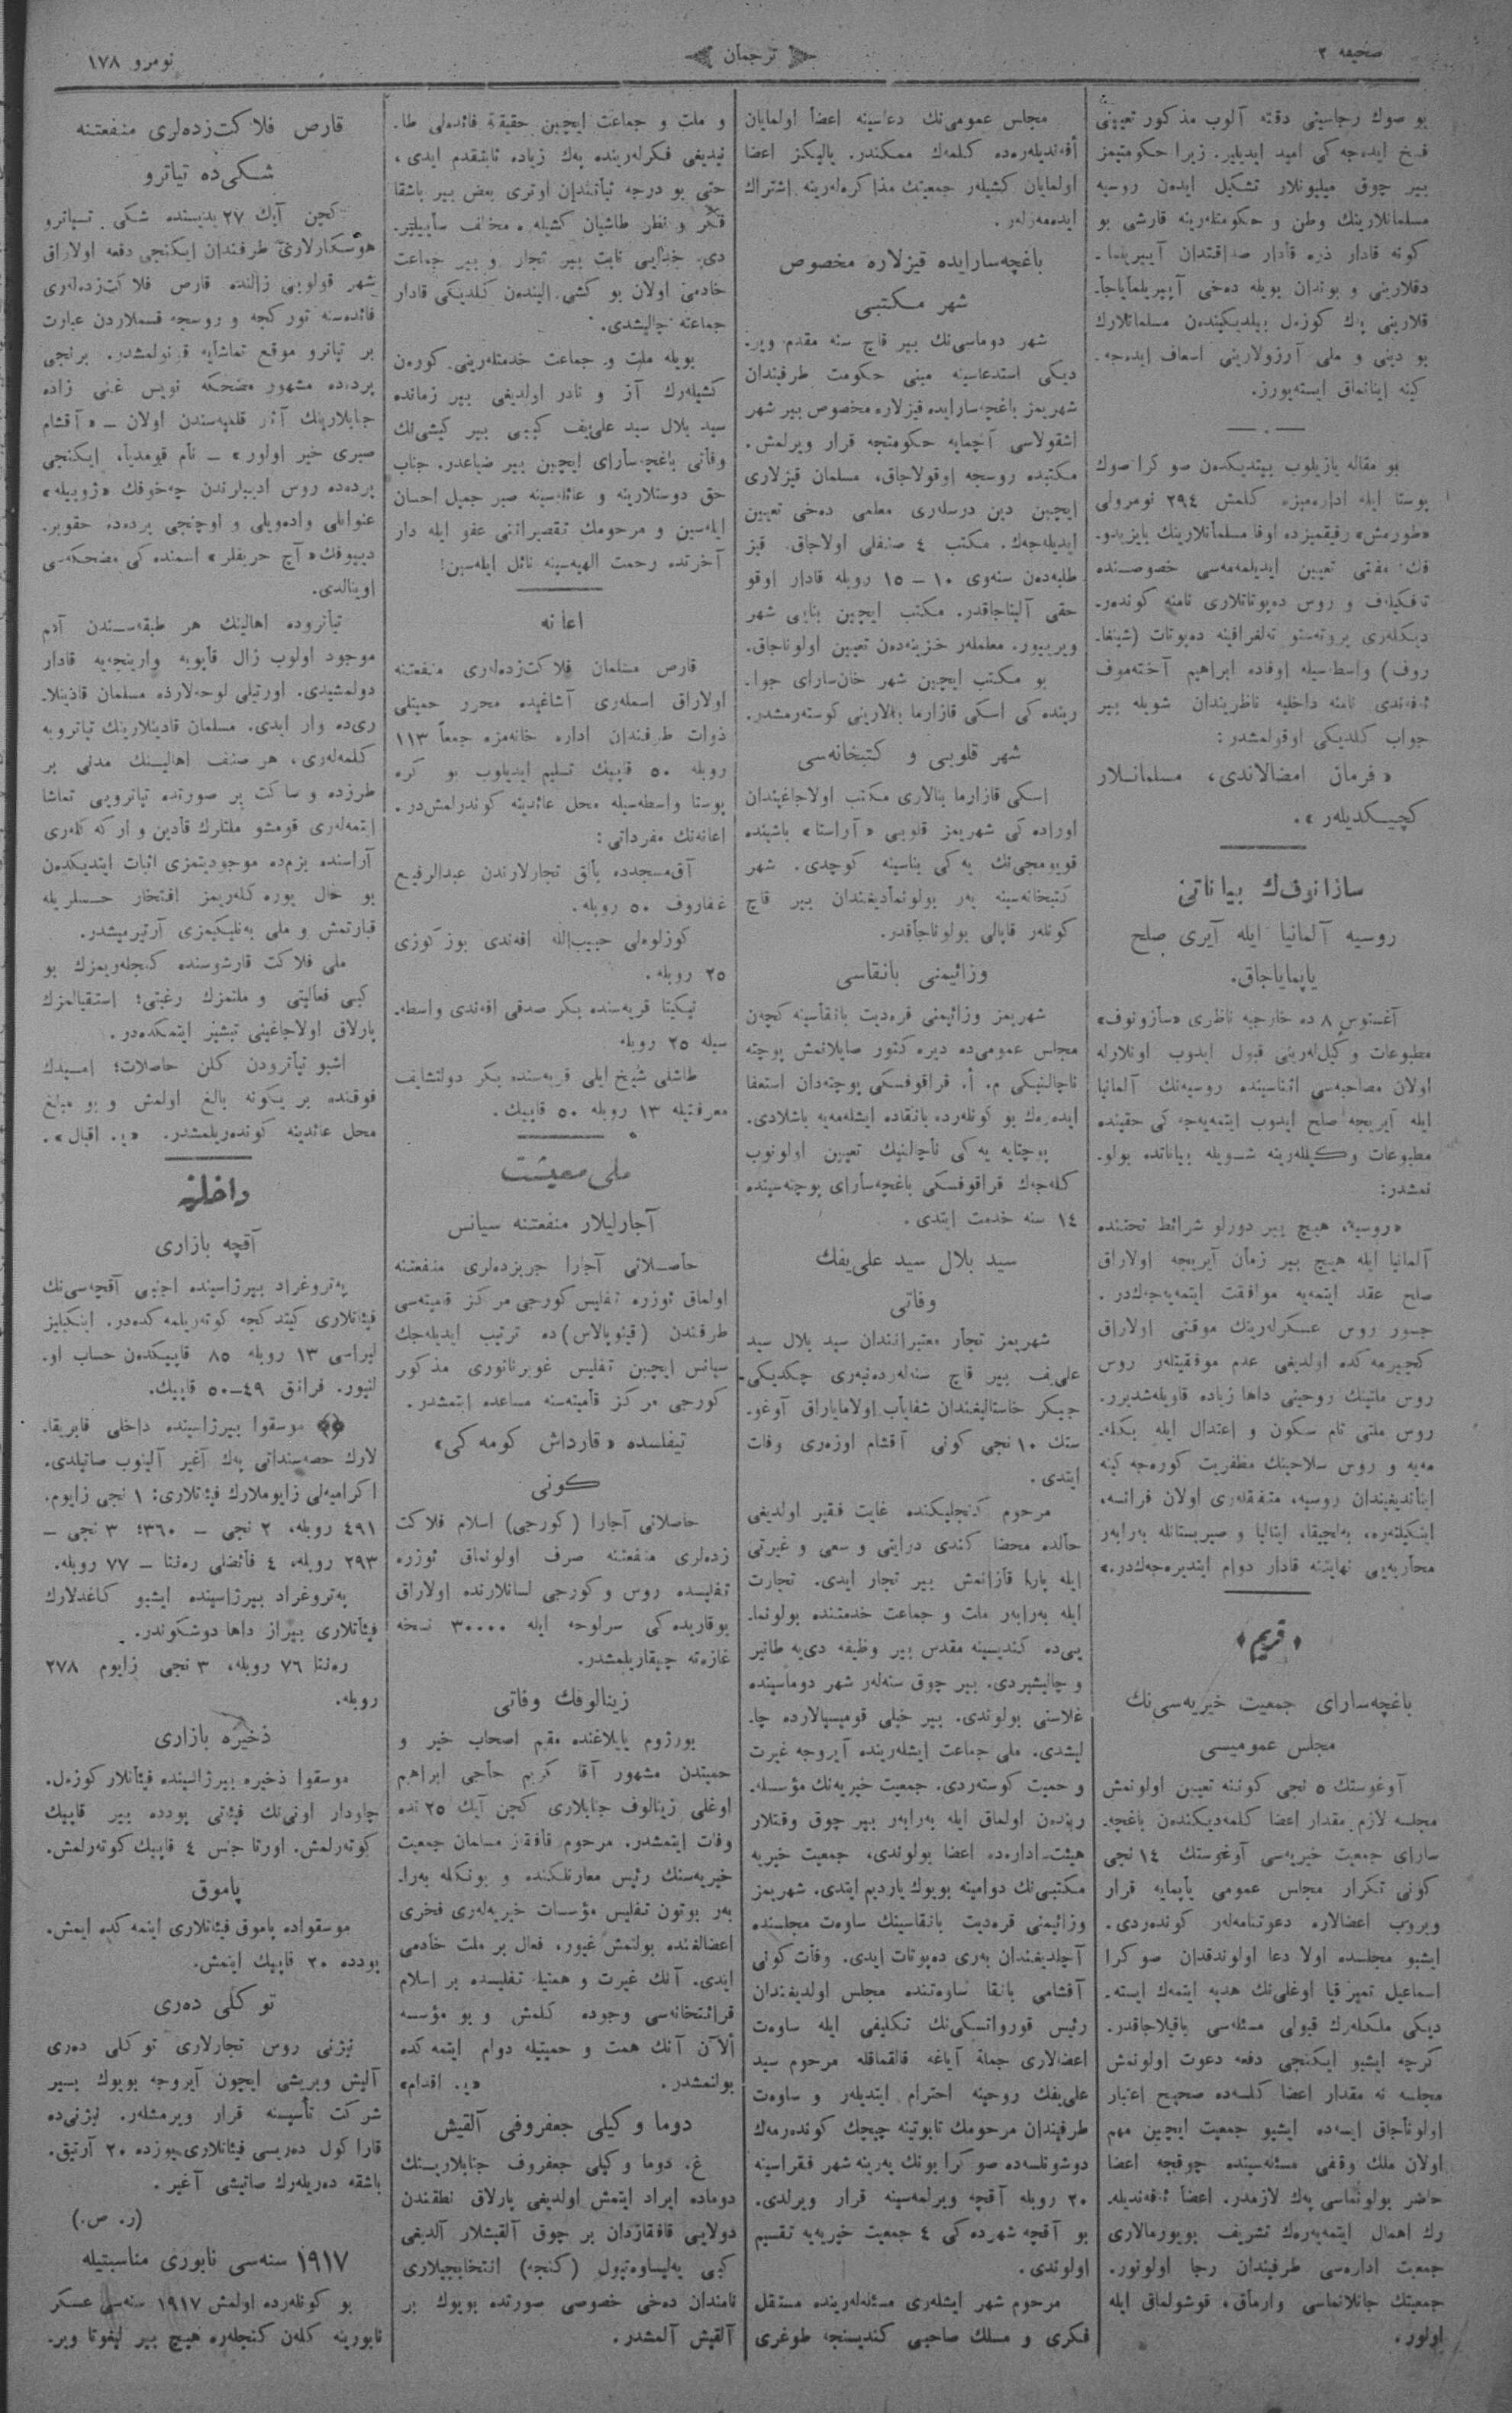 صحیفه ٢
ترجمان
نومرو ١٧٨
بو صوك رجاسینی دقته آلوب مذكور تعیینی
فسخ ایده‌جه‌كی امید ایدیلیر. زیرا حكومتیمز
بیر چوق میلیونلار تشكیل ایدەن روسیه
مسلمانلارینك وطن و حكومتلەرینه قارشی بو
كونه قادار ذره قادار صداقتدان آییریلما-
دقلارینی و بوندان بویله دەخی آییریلمایاجا-
قلارینی پك كوزەل بیلدیكیندەن مسلمانلارك
بو دینی و ملی آرزولارینی اسعاف ایدەجە-
كینه اینانماق ایستەیورز.
بو مقاله یازیلوب بیتدیكدەن صوكرا صوك
پوستا ایله ادارەمیزه كلمش ٢٩٤ نومرولی
«طورمش» رفیقمیزده اوفا مسلمانلارینك بایزیدو-
فك مفتی تعیین ایدیلمەمەسی خصوصنده
دیكلەری پروتەستو تەلغرافینه دەپوتات (شینغا-
روف) واسطەسیله اوفاده ابراهیم آختەموف
افەندی نامنه داخلیه ناظریندان شویله بیر
جواب كلدیكی اوقولمشدر:
«فرمان امضالاندی، مسلمانلار
كچیكدیلەر».
سازانوفك بیاناتی
روسیه آلمانیا ایله آیری صلح
یاپمایاجاق.
آغستوس ٨ ده خارجیه ناظری «سازونوف»
مطبوعات وكیل‌لەرینی قبول ایدوب اونلارله
اولان مصاحبەسی اثناسینده روسیەنك آلمانیا
ایله آیریجه صلح ایدوب ایتمەیەجەكی حقینده
مطبوعات وكیللەرینه شویله بیاناتده بولو-
نمشدر:
«روسیه، هیچ بیر دورلو شرائط تحتنده
آلمانیا ایله هیچ بیر زمان آیریجه اولاراق
صلح عقد ایتمەیه موافقت ایتمەیەجەكدر.
جسور روس عسكرلەرینك موقتی اولاراق
كچیرمەكده اولدیغی عدم موفقیتلەر روس
روس ملتینك روحینی داها زیاده قاویلەشدیرر.
روس ملتی تام سكون و اعتدال ایله بكلە-
مەیه و روس سلاحینك مظفریت كورەجەكینه
ایناندیغیندان روسیه، متفقلەری اولان فرانسه،
اینكیلتەره، بەلچیقا، ایتالیا و صیربستانله بەرابەر
محاربەیی نهایتنه قادار دوام ایتدیرەجەكدر.»
﴿قریم﴾
باغچەسارای جمعیت خیریەسی‌نك
مجلس عمومیسی
آوغوستك ٥ نجی كونینه تعیین اولونمش
مجلسه لازم مقدار اعضا كلمەدیكندەن باغچە-
سارای جمعیت خیریەسی آوغوستك ١٤ نجی
كونی تكرار مجلس عمومی یاپمایه قرار
ویروب اعضالاره دعوتنامەلەر كوندەردی.
ایشبو مجلسده اولا دعا اولوندقدان صوكرا
اسماعیل تمیرقیا اوغلی‌نك هدیه ایتمەك ایستە-
دیكی ملكلەرك قبولی مسئلەسی باقیلاجاقدر.
كرچه ایشبو ایكنجی دفعه دعوت اولونمش
مجلسه نه مقدار اعضا كلسەده صحیح اعتبار
اولوناجاق ایسەده ایشبو جمعیت ایچین مهم
اولان ملك وقفی مسئلەسینده چوقچه اعضا
حاضر بولونماسی پەك لازمدر. اعضا افەندیلە-
رك اهمال ایتمەیەرەك تشریف بویورمالاری
جمعیت ادارەسی طرفیندان رجا اولونور.
جمعیتك جانلانماسی وارماق، قوشولماق ایله
اولور.
مجلس عمومی‌نك دعاسینه اعضا اولمایان
أفەندیلەرەده كلمەك ممكندر. یالیكز اعضا
اولمایان كشیلەر جمعیتك مذاكرەلەرینه اشتراك
ایدەمەزلەر.
باغچەسارایده قیزلاره مخصوص
شهر مكتبی
شهر دوماسی‌نك بیر قاچ سنه مقدم ویر-
دیكی استدعاسینه مبنی حكومت طرفیندان
شهریمز باغچەسارایده قیزلاره مخصوص بیر شهر
اشقولاسی آچمایه حكومتجه قرار ویرلمش.
مكتبده روسجه اوقولاجاق، مسلمان قیزلاری
ایچین دین درسلەری معلمی دەخی تعیین
ایدیلەجەك. مكتب ٤ صنفلی اولاجاق. قیز
طلبەدەن سنەوی ١٠ – ١٥ روبله قادار اوقو
حقی آلیناجاقدر. مكتب ایچین بنایی شهر
ویرییور. معلملەر خزینەدەن تعیین اولوناجاق.
بو مكتب ایچین شهر خان‌سارای جوا-
رینده‌كی اسكی قازارما بنالارینی كوستەرمشدر.
شهر قلوبی و كتبخانەسی
اسكی قازارما بنالاری مكتب اولاجاغیندان
اوراده‌كی شهریمز قلوبی «آراستا» باشینده
قویومجی‌نك یەكی بناسینه كوچدی. شهر
كتبخانەسینه یەر بولونمادیغیندان بیر قاچ
كونلەر قاپالی بولوناجاقدر.
وزائیمنی بانقاسی
شهریمز وزائیمنی قرەدیت بانقاسینه كچەن
مجلس عمومی‌ده دیرەكتور صایلانمش پوچته
ناچالنیكی م. أ. قراقوفسكی پوچتەدان استعفا
ایدەرەك بو كونلەرده بانقاده ایشلەمەیه باشلادی.
پوچتایه یەكی ناچالنیك تعیین اولونوب
كلەجەك قراقوفسكی باغچەسارای پوچتەسینده
١٤ سنه خدمت ایتدی.
سید بلال سید علی‌یفك
وفاتی
شهریمز تجار معتبراتندان سید بلال سید
علی‌یف بیر قاچ سنەلەردەنبەری چكدیكی
جیكر خاستالیغیندان شفایاب اولامایاراق آوغو-
ستك ١٠ نجی كونی آقشام اوزەری وفات
ایتدی.
مرحوم كنجلیكنده غایت فقیر اولدیغی
حالده محضا كندی درایتی و سعی و غیرتی
ایله پارا قازانمش بیر تجار ایدی. تجارت
ایله بەرابەر ملت و جماعت خدمتنده بولونما-
یی‌ده كندیسینه مقدس بیر وظیفه دی‌یه طانیر
و چالیشیردی. بیر چوق سنەلەر شهر دوماسینده
غلاسنی بولوندی. بیر خیلی قومیسیالارده چا-
لیشدی. ملی جماعت ایشلەرینده آیروجه غیرت
و حمیت كوستەردی. جمعیت خیریەنك مؤسسلە-
ریندەن اولماق ایله بەرابەر بیر چوق وقتلار
هیئت ادارەده اعضا بولوندی، جمعیت خیریه
مكتبی‌نك دوامینه بویوك یاردیم ایتدی. شهریمز
وزائیمنی قرەدیت بانقاسینك ساوەت مجلسنده
آچلدیغیندان بەری دەپوتات ایدی. وفات كونی
آقشامی بانقا ساوەتنده مجلس اولدیغیندان
رئیس قورواتسكی‌نك تكلیفی ایله ساوەت
اعضالاری جملة آیاغه قالقماقله مرحوم سید
علی‌یفك روحینه احترام ایتدیلەر و ساوەت
طرفیندان مرحومك تابوتینه چیچك كوندەرمەك
دوشونلسەده صوكرا بونك یەرینه شهر فقراسینه
٢٠ روبله آقچه ویرلمەسینه قرار ویرلدی.
بو آقچه شهرده‌كی ٤ جمعیت خیریەیه تقسیم
اولوندی.
مرحوم شهر ایشلەری مسئلەلەرینده مستقل
فكری و مسلك صاحبی كندیسنجه طوغری
و ملت و جماعت ایچین حقیقة فائدەلی طا-
نیدیغی فكرلەرینده پەك زیاده ثابتقدم ایدی،
حتی بو درجه ثباتندان اوتری بعض بیر باشقا
فكر و نظر طاشیان كشیلەره مخالف صاییلیر-
دی. خدایی ثابت بیر تجار و بیر جماعت
خادمی اولان بو كشی الیندەن كلدیكی قادار
جماعته چالیشدی.
بویله ملت و جماعت خدمتلەرینی كورەن
كشیلەرك آز و نادر اولدیغی بیر زمانده
سید بلال سید علی‌یف كیبی بیر كیشی‌نك
وفاتی باغچەسارای ایچین بیر ضیاعدر. جناب
حق دوستلارینه و عائلەسینه صبر جمیل احسان
ایلەسین و مرحومك تقصیراتنی عفو ایله دار
آخرتده رحمت الهیەسینه نائل ایلەسین!
اعانه
قارص مسلمان فلاكت‌زدەلری منفعتنه
اولاراق اسملەری آشاغیده محرر حمیتلی
ذوات طرفندان اداره خانەمزه جمعاً ١١٣
روبله ٥٠ قاپیك تسلیم ایدیلوب بو كره
پوستا واسطەسیله محل عائدینه كوندرلمش‌در.
اعانەنك مفرداتی:
آق‌مسجدده بالق تجارلارندن عبدالرفیع
غفاروف ٥٠ روبله.
كوزلوەلی حبیب‌الله افەندی بوزكوزی
٢٥ روبله.
نیكیتا قریەسنده بكر صدقی افەندی واسطە-
سیله ٢٥ روبله
طاشلی شیخ ایلی قریەسنده بكر دولتشایف
معرفتیله ١٣ روبله ٥٠ قاپیك.
ملی معیشت
آجارلیلار منفعتنه سپانس
حاصلاتی آجارا حربزدەلری منفعتنه
اولماق ئوزره تفلیس كورجی مركز قامیتەسی
طرفندن (قینوپالاس)ده ترتیب ایدیلەجك
سپانس ایچین تفلیس غوبرناتوری مذكور
كورجی مركز قامیتەسنه مساعده ایتمشدر.
تیفلسده «قارداش كومەكی»
كونی
حاصلاتی آجارا (كورجی) اسلام فلاكت
زدەلری منفعتنه صرف اولونماق ئوزره
تفلیسده روس و كورجی لسانلارنده اولاراق
یوقاریده‌كی سرلوحه ایله ٣٠٠٠٠ نسخه
غازەته چیقاریلمشدر.
زینالوفك وفاتی
بورژوم یایلاغنده مقیم اصحاب خیر و
حمیتدن مشهور آقا كریم حاجی ابراهیم
اوغلی زینالوف جنابلاری كچن آیك ٢٥ نده
وفات ایتمشدر. مرحوم قافقاز مسلمان جمعیت
خیریەسنك رئیس معاونلكنده و بونكله بەرا-
بەر بوتون تفلیس مؤسسات خیریەلەری فخری
اعضالغنده بولنمش غیور، فعال بر ملت خادمی
ایدی. آنك غیرت و همتیله تفلیسده بر اسلام
قرائتخانەسی وجوده كلمش و بو مؤسسه
ألآن آنك همت و حمیتیله دوام ایتمەكده
بولنمشدر. «ی. اقدام»
دوما وكیلی جعفروفی آلقیش
غ. دوما وكیلی جعفروف جنابلارینك
دوماده ایراد ایتمش اولدیغی پارلاق نطقندن
دولایی قافقازدان بر چوق آلقیشلار آلدیغی
كبی یەلیساوەتپول (كنجه) انتخابچیلاری
نامندان دەخی خصوصی صورتده بویوك بر
آلقیش آلمشدر.
قارص فلاكت‌زدەلری منفعتنه
شكی‌ده تیاترو
كچن آیك ٢٧ یدیسنده شكی تیاترو
هوسكارلاری طرفندان ایكنجی دفعه اولاراق
شهر قولوبی زالنده قارص فلاكت‌زدەلەری
فائدەسنه توركجه و روسجه قسملاردن عبارت
بر تیاترو موقع تماشایه قونولمشدر. برنجی
پردەده مشهور مضحكه نویس غنی زاده
جنابلارینك آثار قلمیەسندن اولان – «آقشام
صبری خیر اولور» – نام قومدیا، ایكنجی
پردەده روس ادیبلرندن چەخوفك «یوبیله»
عنوانلی وادەویلی و اوچنجی پردەده حقویر-
دییوفك «آج حریفلر» اسمنده‌كی مضحكەسی
اوینالدی.
تیاتروده اهالینك هر طبقەسندن آدم
موجود اولوب زال قاپویه وارینجەیه قادار
دولمشیدی. اورتیلی لوحەلارده مسلمان قادینلا-
ری‌ده وار ایدی. مسلمان قادینلارینك تیاترویه
كلمەلەری، هر صنف اهالینك مدنی بر
طرزده و ساكت بر صورتده تیاترویی تماشا
ایتمەلەری قومشو ملتلرك قادین و اركەكلەری
آراسنده بزم‌ده موجودیتمزی اثبات ایتدیكدەن
بو حال یورەكلەریمز افتخار حسلریله
قبارتمش و ملی بەنلیكیمزی آرتیرمیشدر.
ملی فلاكت قارشوسنده كنجلەریمزك بو
كبی فعالیتی و ملتمزك رغبتی؛ استقبالمزك
پارلاق اولاجاغینی تبشیر ایتمكدەدر.
اشبو تیاترودن كلن حاصلات؛ امیدك
فوقنده بر یكونه بالغ اولمش و بو مبلغ
محل عائدینه كوندەریلمشدر. «ی. اقبال».
داخلیه
آقچه بازاری
پەتروغراد بیرژاسینده اجنبی آقچەسی‌نك
فیئاتلاری كیتدكجه كوتەریلمەكدەدر. اینكیلیز
لیراسی ١٣ روبله ٨٥ قاپیكدەن حساب او-
لنیور. فرانق ٤٩–٥٠ قاپیك.
موسقوا بیرژاسینده داخلی فابریقا-
لارك حصەسنداتی پەك آغیر آلینوب صاتیلدی.
اكرامیەلی زایوملارك فیئاتلاری: ١ نجی زایوم.
٤٩١ روبله، ٢ نجی – ٣٦٠؛ ٣ نجی –
٢٩٣ روبله، ٤ فائضلی رەنتا – ٧٧ روبله.
پەتروغراد بیرژاسینده ایشبو كاغدلارك
فیئاتلاری بیراز داها دوشكوندر.
رەنتا ٧٦ روبله، ٣ نجی زایوم ٢٧٨
روبله.
ذخیره بازاری
موسقوا ذخیره بیرژاسینده فیئاتلار كوزەل.
چاودار اونی‌نك فیئتی پودده بیر قاپیك
كوتەرلمش. اورتا جنس ٤ قاپیك كوتەرلمش.
پاموق
موسقواده پاموق فیئاتلاری اینمەكده ایمش.
پودده ٣٠ قاپیك اینمش.
توكلی دەری
نیژنی روس تجارلاری توكلی دەری
آلیش ویریشی ایچون آیروجه بویوك بیر
شركت تأسیسنه قرار ویرمشلەر. نیژنی‌ده
قاراكول دەریسی فیئاتلاری یوزده ٢٠ آرتیق.
باشقه دەریلەرك صاتیشی آغیر.
(ر. ص.)
١٩١٧ سنەسی نابوری مناسبتیله
بو كونلەرده اولمش ١٩١٧ سنەسی عسكر
نابورینه كلەن كنجلەره هیچ بیر لیغوتا ویر-